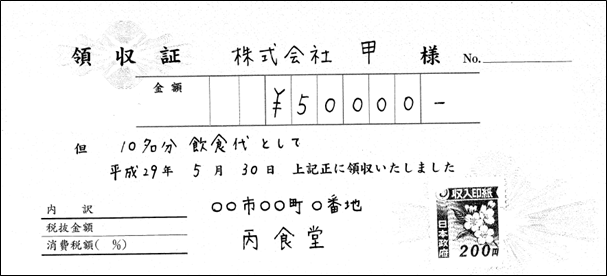 領収証 株式会社 甲 様 No.
金額 ¥50000-
但 10名分 飲食代として
平成29年 5月30日 上記正に領収いたしました
内訳
税抜金額
消費税額( %)
○○市○○町○番地
丙食堂
収入印紙
日本政府
200円